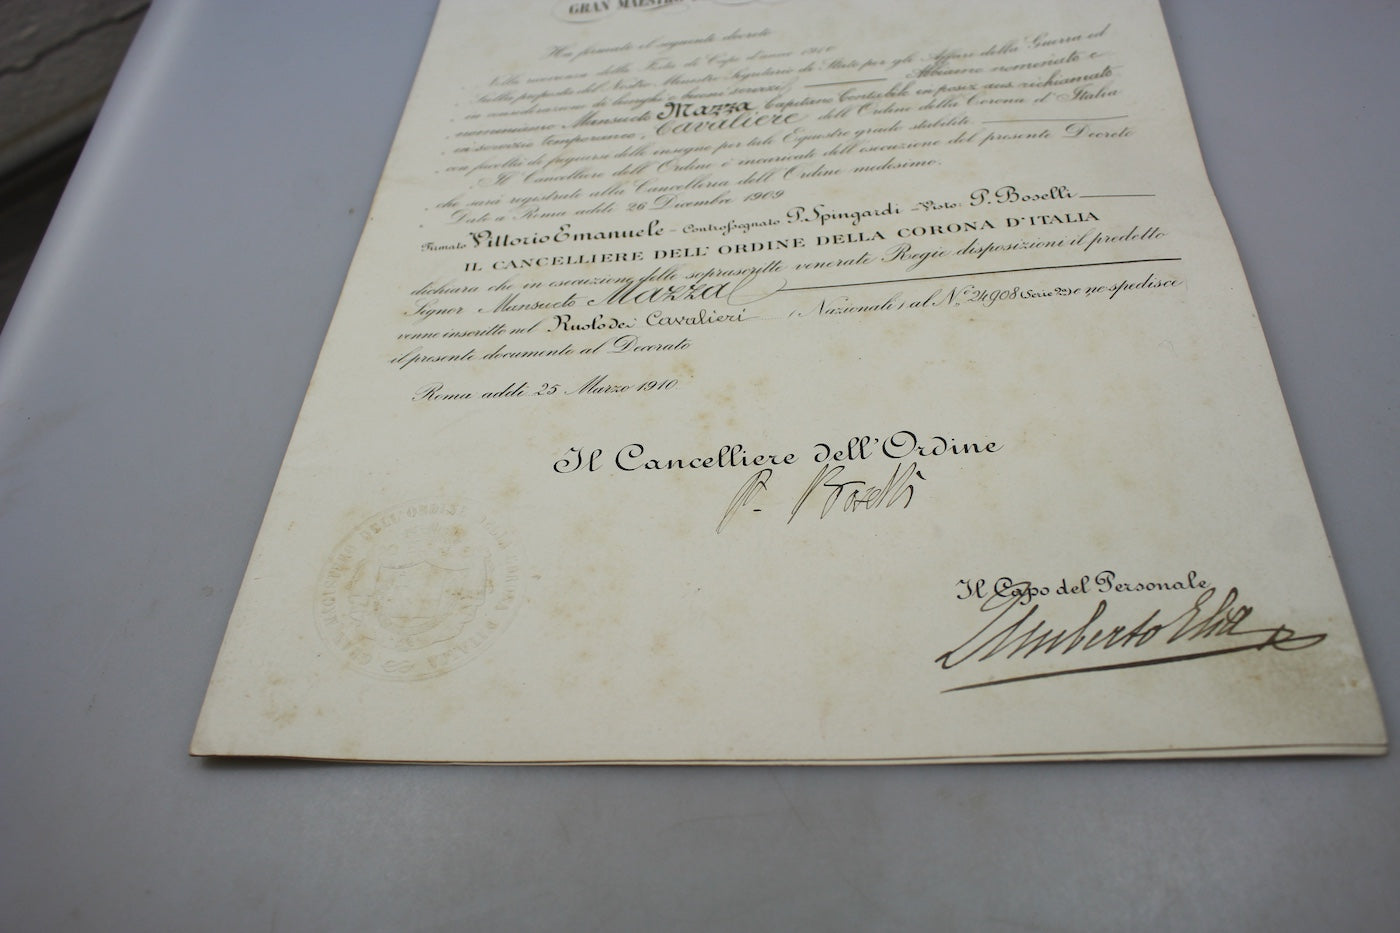 GRAN MAESTRO
Ha firmato il seguente decreto
Nella ricorrenza della Festa di Capo d'anno 1910
Sulla proposta del Nostro Ministro Segretario di Stato per gli Affari della Guerra ed
in considerazione di lunghi e buoni servizi Abbiamo nominato e
nominiamo Mansueto Mazza Capitano Contabile in posiz aus richiamato
in servizio temporaneo, Cavaliere dell'Ordine della Corona d'Italia
con facoltà di fregiarsi delle insegne per tale Equestre grado stabilite
Il Cancelliere dell'Ordine è incaricato dell'esecuzione del presente Decreto
che sarà registrato alla Cancelleria dell'Ordine medesimo.
Dato a Roma addì 26 Dicembre 1909
Firmato Vittorio Emanuele - Controssegnato P. Spingardi - Visto: P. Boselli
IL CANCELLIERE DELL'ORDINE DELLA CORONA D'ITALIA
dichiara che in esecuzione delle soprascritte venerate Regie disposizioni il predetto
Signor Mansueto Mazza
venne inscritto nel Ruolo dei Cavalieri (Nazionali) al N.° 24908 Serie 2a e ne spedisce
il presente documento al Decorato
Roma addì 25 Marzo 1910
Il Cancelliere dell'Ordine
P. Boselli
GRAN MAGISTERO DELL'ORDINE DELLA CORONA D'ITALIA
Il Capo del Personale
Umberto Elia